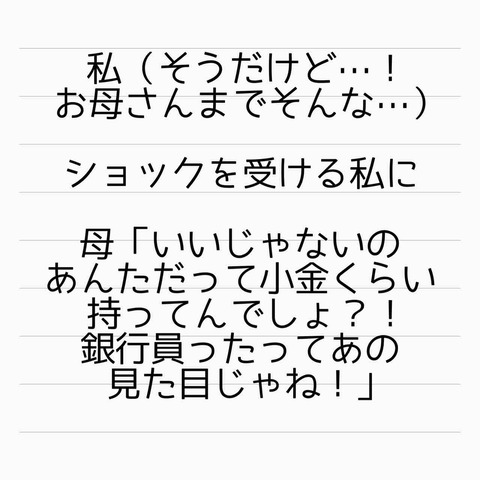 私（そうだけど…！
お母さんまでそんな…）
ショックを受ける私に
母「いいじゃないの
あんただって小金くらい
持ってんでしょ？！
銀行員ったってあの
見た目じゃね！」